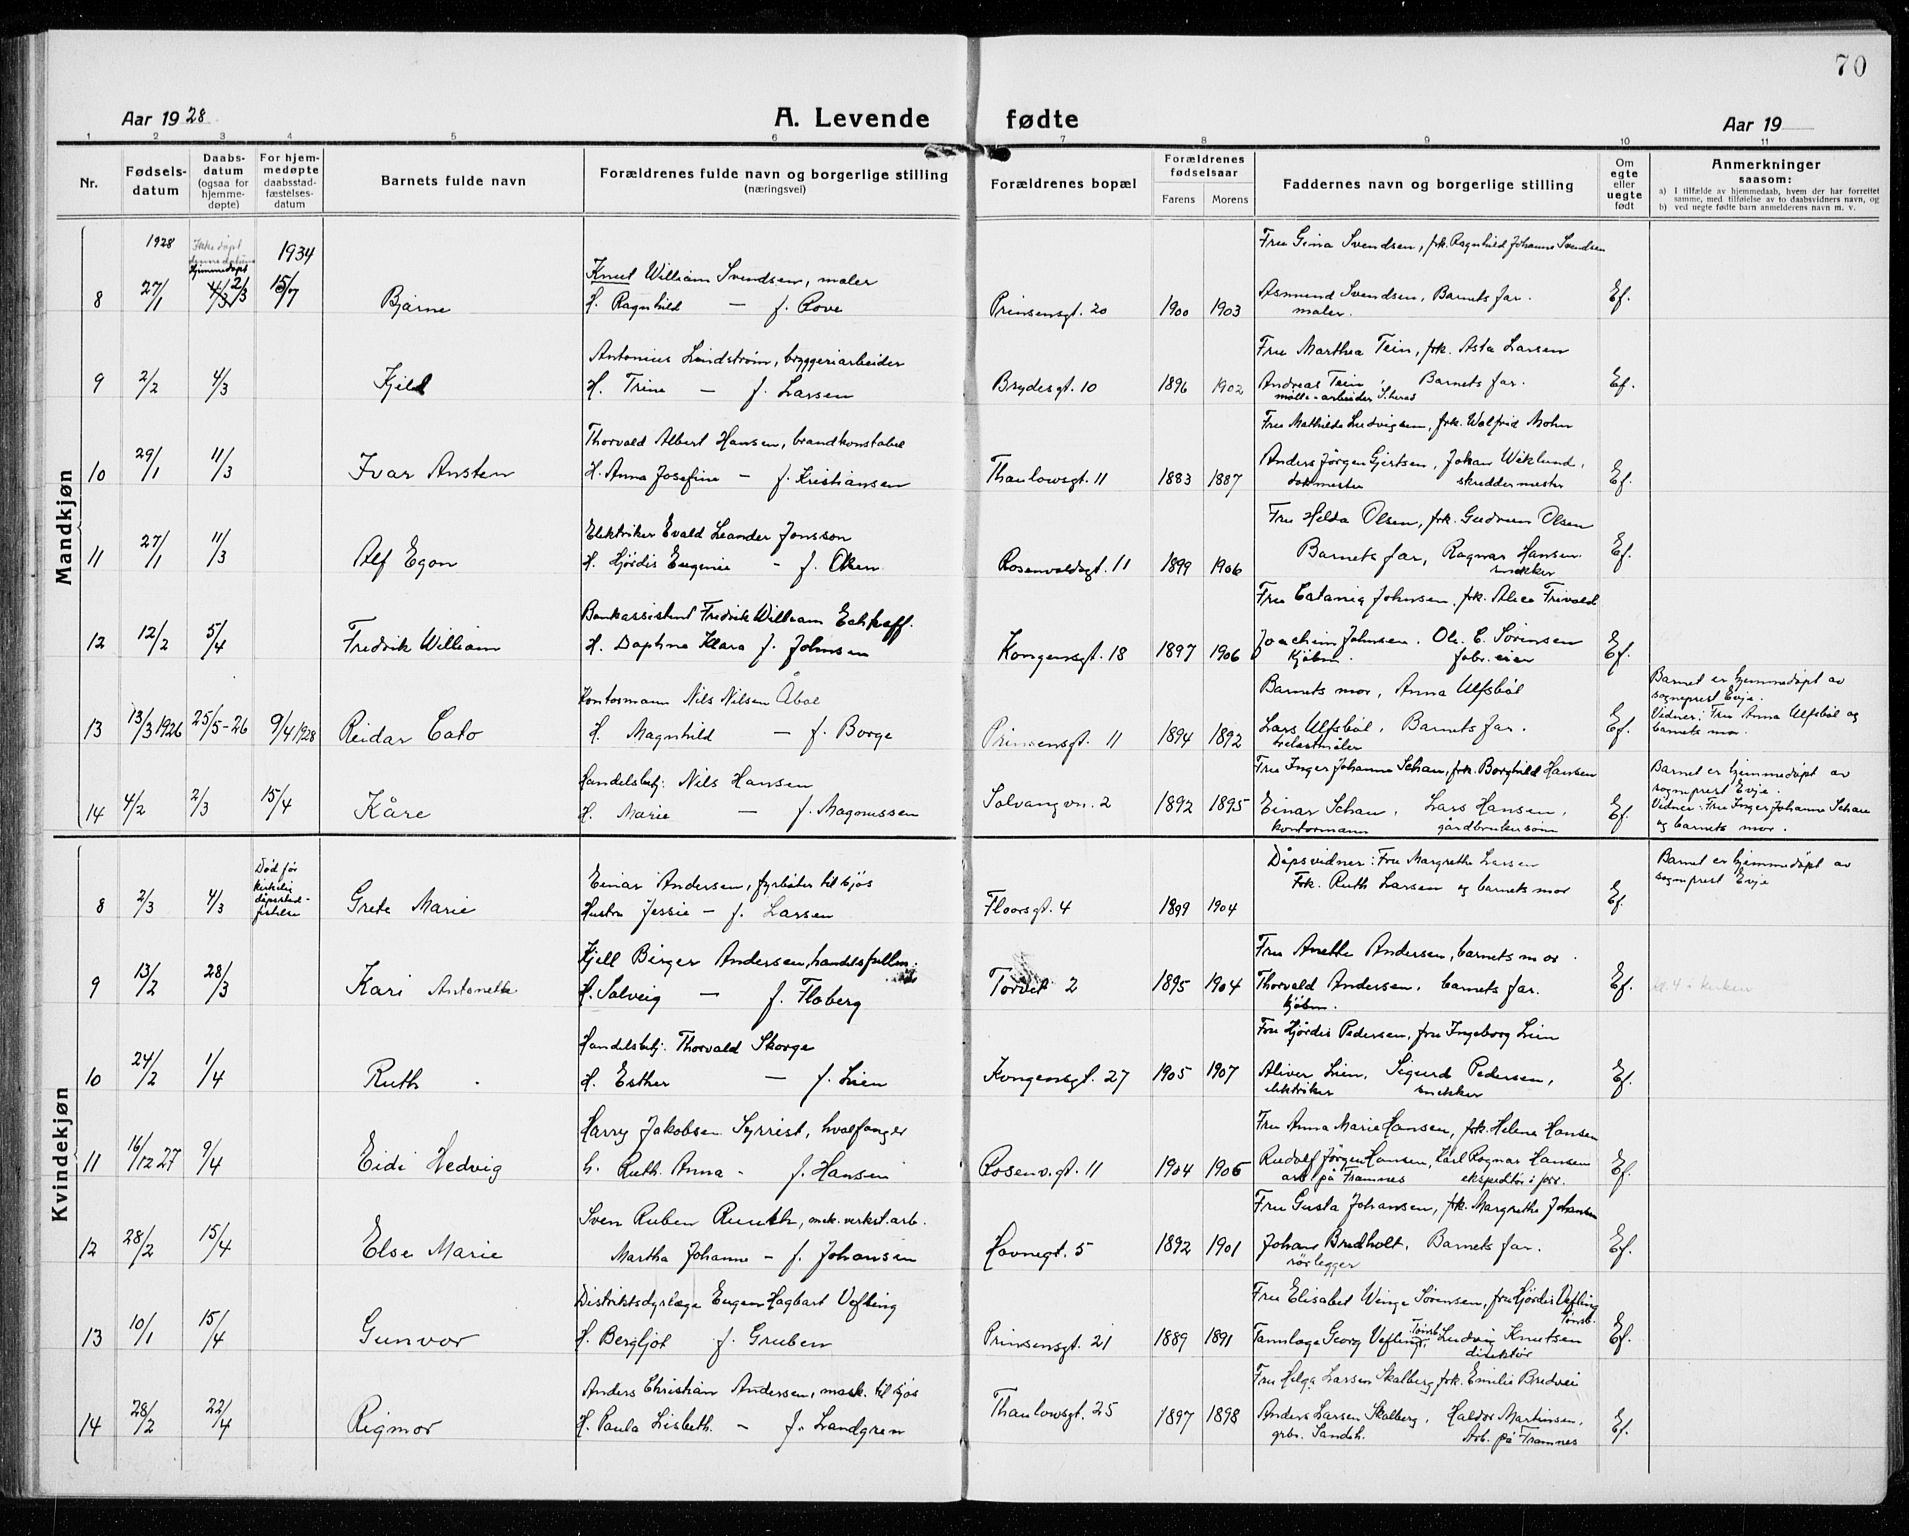 70
Aar 1928
A. Levende fødte
Aar 19
1 2 3 4 5 6 7 8 9 10 11
Nr.
Fødsels-
datum
Daabs-
datum
(ogsaa for
hjemme-
døpte)
For hjem-
medøpte
daabsstad-
fæstelses-
datum
Barnets fulde navn
Forældrenes fulde navn og borgerlige stilling
(næringsvei)
Forældrenes bopæl
Forældrenes
fødselsaar
Farens Morens
Faddernes navn og borgerlige stilling
Om
egte
eller
uegte
født
Anmerkninger
saasom:
a) I tilfælde av hjemmedaab, hvem der har forrettet
samme, med tilføielse av to daabsvidners navn, og
b) ved uegte fødte barn anmelderens navn m. v.
Mandkjøn
1928 Ikke døpt 1934 Fru Gina Svendsen, frk. Ragnhild Johanne Svendsen
denne datum
Hjemmedøpt
Knut William Svendsen, maler
8 27/1 4/3 2/3 15/7 Bjarne H. Ragnhild — f. Rove Prinsensgt. 20 1900 1903 Asmund Svendsen, Barnets far. Ef.
maler.
Antonius Lindstrøm, bryggeriarbeider Fru Marthea Tein, frk. Asta Larsen
9 2/2 4/3 Kjell H. Trine — f. Larsen Brydesgt. 10 1896 1902 Andreas Tein, Barnets far. Ef.
mølle-arbeider
Thorvald Albert Hansen, brandkonstabel Fru Mathilde Ludvigsen, frk. Walfrid Mohn
10 29/1 11/3 Ivar Ansten H. Anna Josefine — f. Kristiansen Thaulowsgt. 11 1883 1887 Anders Jørgen Gjertsen, Johan Wiklund, Ef.
skreddermester
Elektriker Evald Leander Jonsson Fru Helda Olsen, frk. Gudrun Olsen
11 27/1 11/3 Alf Egon H. Hjørdis Eugenie — f. Oken Rosenvoldsgt. 11 1899 1906 Barnets far, Ragnar Hansen. Ef.
snekker
Bankassistent Fredrik William Eckhoff. Fru Catania Johnsen, frk. Alice Trivald
12 12/2 5/4 Fredrik William H. Daphne Klara f. Johnsen Kongensgt. 18 1897 1906 Joachim Johnsen. Ole C. Sørensen Ef.
kjøbm. fabr. eier
Kontormann Nils Nilsen Åbol Barnets mor, Anna Ulfsbøl Barnet er hjemmedøpt av
sogneprest Evje.
13 13/3 1926 25/5-26 9/4 1928 Reidar Cato H. Magnhild — f. Borge Prinsensgt. 11 1894 1892 Lars Ulfsbøl, Barnets far. Ef. Vidner: Fru Anna Ulfsbøl og
trelastmåler barnets mor.
Handelsbetj. Nils Hansen Fru Inger Johanne Schau, frk. Borghild Hansen Barnet er hjemmedøpt av
sogneprest Evje.
14 4/2 2/3 15/4 Kåre H. Marie — f. Magnussen Solvangvn. 2 1892 1895 Einar Schau, Lars Hansen, Ef. Vidner: Fru Inger Johanne Schau
kontormann gårdbrukersønn og barnets mor.
Kvindekjøn
Død før Dåpsvidner: Fru Margrethe Larsen Barnet er hjemmedøpt av
kirkelig Einar Andersen, fyrbøter til sjøs Frk. Ruth Larsen og barnets mor sogneprest Evje
8 2/3 4/3 dåpsstad-
festelse Grete Marie Hustru Jessie — f. Larsen Floorsgt. 4 1899 1904 Ef.
Kjell Birger Andersen, handelsfullm. Fru Anette Andersen, barnets mor.
9 13/2 28/3 Kari Antonette H. Solveig — f. Floberg Torvet 2 1895 1904 Thorvald Andersen, barnets far. Ef. kl. 4 i kirken
kjøbm.
Handelsbetj. Thorvald Skorge Fru Hjørdis Pedersen, fru Ingeborg Lien
10 24/2 1/4 Ruth H. Esther — f. Lien Kongensgt. 27 1905 1907 Aliver Lien, Sigurd Pedersen, Ef.
elektriker snekker
Harry Jakobsen Syrrist, hvalfanger Fru Anna Marie Hansen, frk. Helene Hansen
11 16/12 27 9/4 Eidi Hedvig h. Ruth Anna — f. Hansen Rosenv.gt. 11 1904 1906 Rudolf Jørgen Hansen, Karl Ragnar Hansen Ef.
arb på Framnes ekspeditør i forr.
Sven Ruben Ruuth, mek. verkst. arb. Fru Gusta Johansen, frk. Margrethe Johansen
12 28/2 15/4 Else Marie Martha Johanne — f. Johansen Havnegt. 5 1892 1901 Johan Bredholt, Barnets far. Ef.
rørlegger
Distriktsdyrlæge Eugen Hagbart Vefling Fru Elisabet Winge Sørensen, fru Hjørdis Vefling
Tønsb.
13 10/1 15/4 Gunvor H. Bergljot f. Gruben Prinsensgt. 21 1889 1891 Tannlæge Georg Vefling, Tønsb. Ludvig Knutsen Ef.
direktør
Anders Christian Andersen, mask. til sjøs Fru Helga Larsen Skalberg, frk. Emilie Bredvei
14 28/2 22/4 Rigmor H. Paula Lisbeth — f. Landgren Thaulowsgt. 25 1897 1898 Anders Larsen Skalberg, Haldor Martinsen, Ef.
grbr. Sandeh. Arb. på Framnes